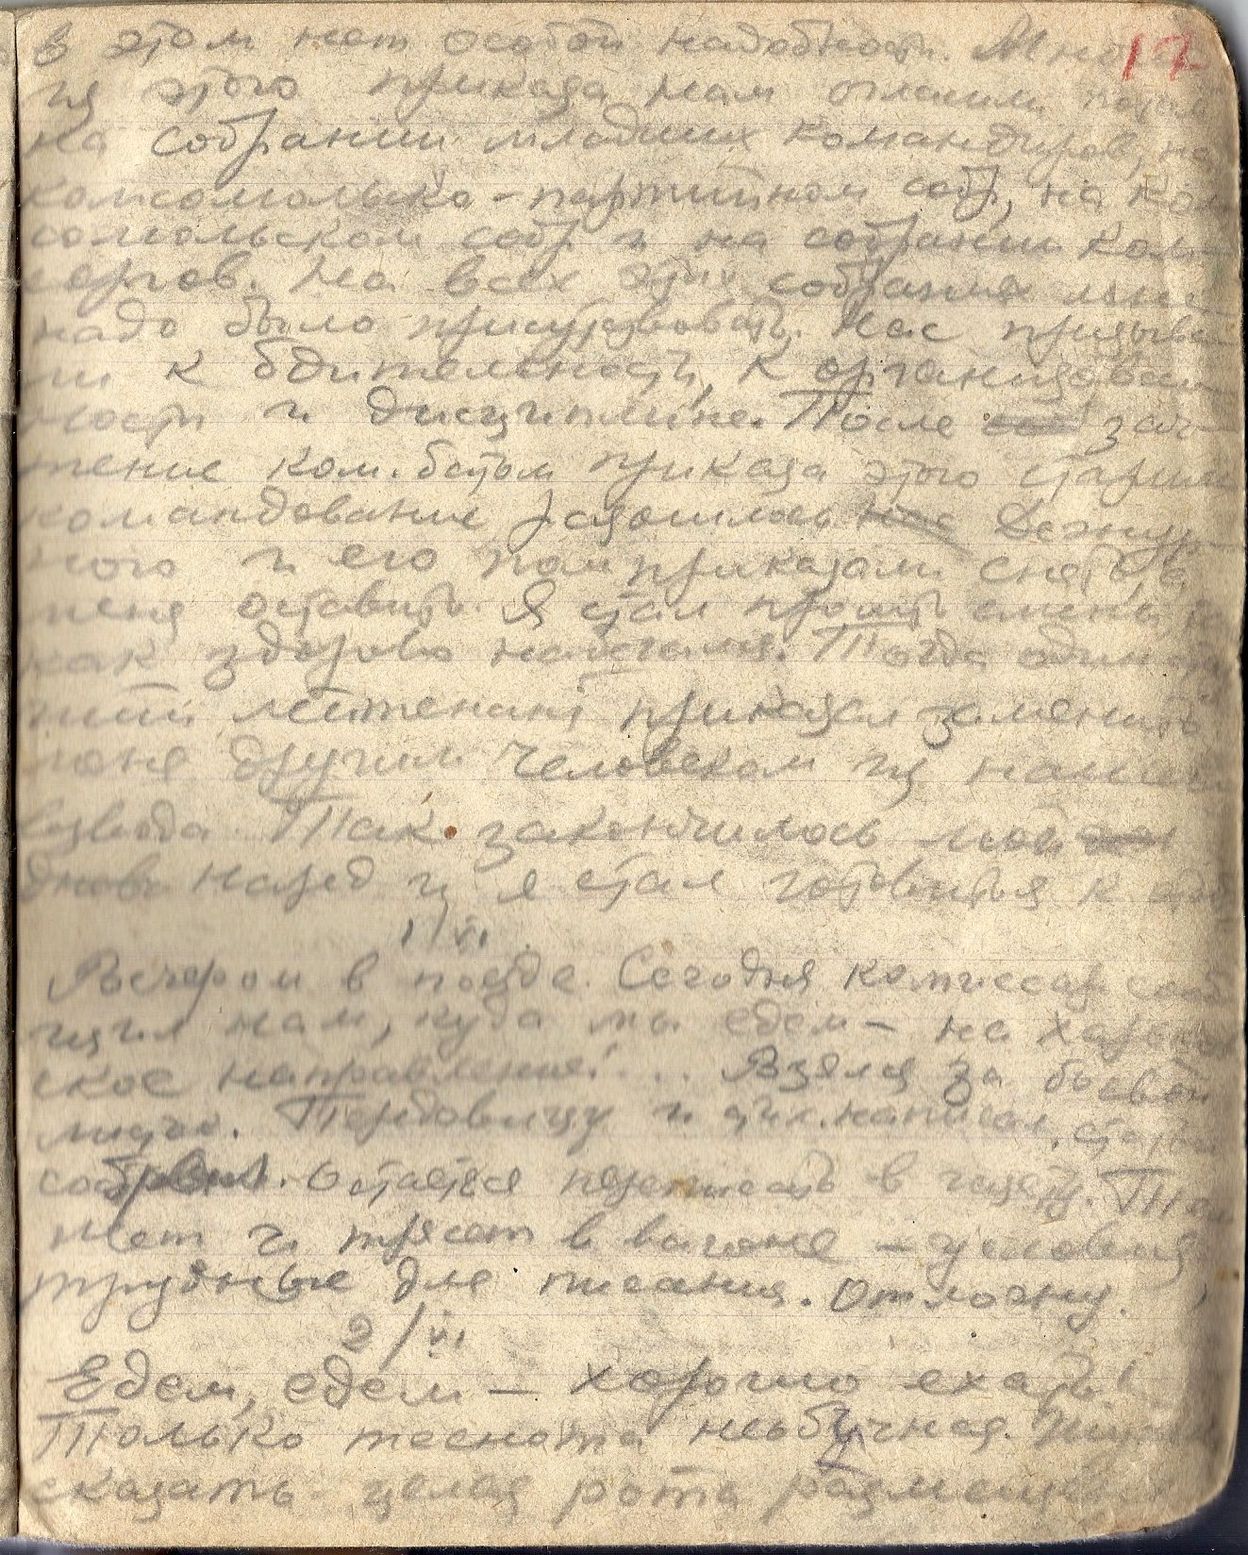 в этом нет особой надобности. Много 17
из этого приказа нам огласили
на собрании младших командиров, на
комсомольско-партийном собр, на ком
сомольском собр и на собрании ком
соргов. На всех этих собраниях мне
надо было присутствовать. Нас призыва
ли к бдительности, к организован
ности и дисциплине. После зач
тение ком. батом приказа этого старш
командование разошлось Дежур
ного и его пом приказали снять, а
меня оставить. Я стал просить смены,
как здорово набегался. Тогда один
ший лейтенант приказал заменить
меня другим человеком из нашего
взвода. Так закончилось мой
дновн наряд и я стал готовиться к
1/VI
Вечером в поезде. Сегодня комиссар сооб
щил нам, куда мы едем – на Харьков
ское направление!... Взялся за боевой
листок. Передовицу и написал,
собрал. Остается переписать в газету.
жет и трясет в вагоне – условия
трудные для писания. Отложу.
2/VI
Едем, едем – хорошо ехать!
Только теснота необычная. Шутка
сказать – целая рота размещена